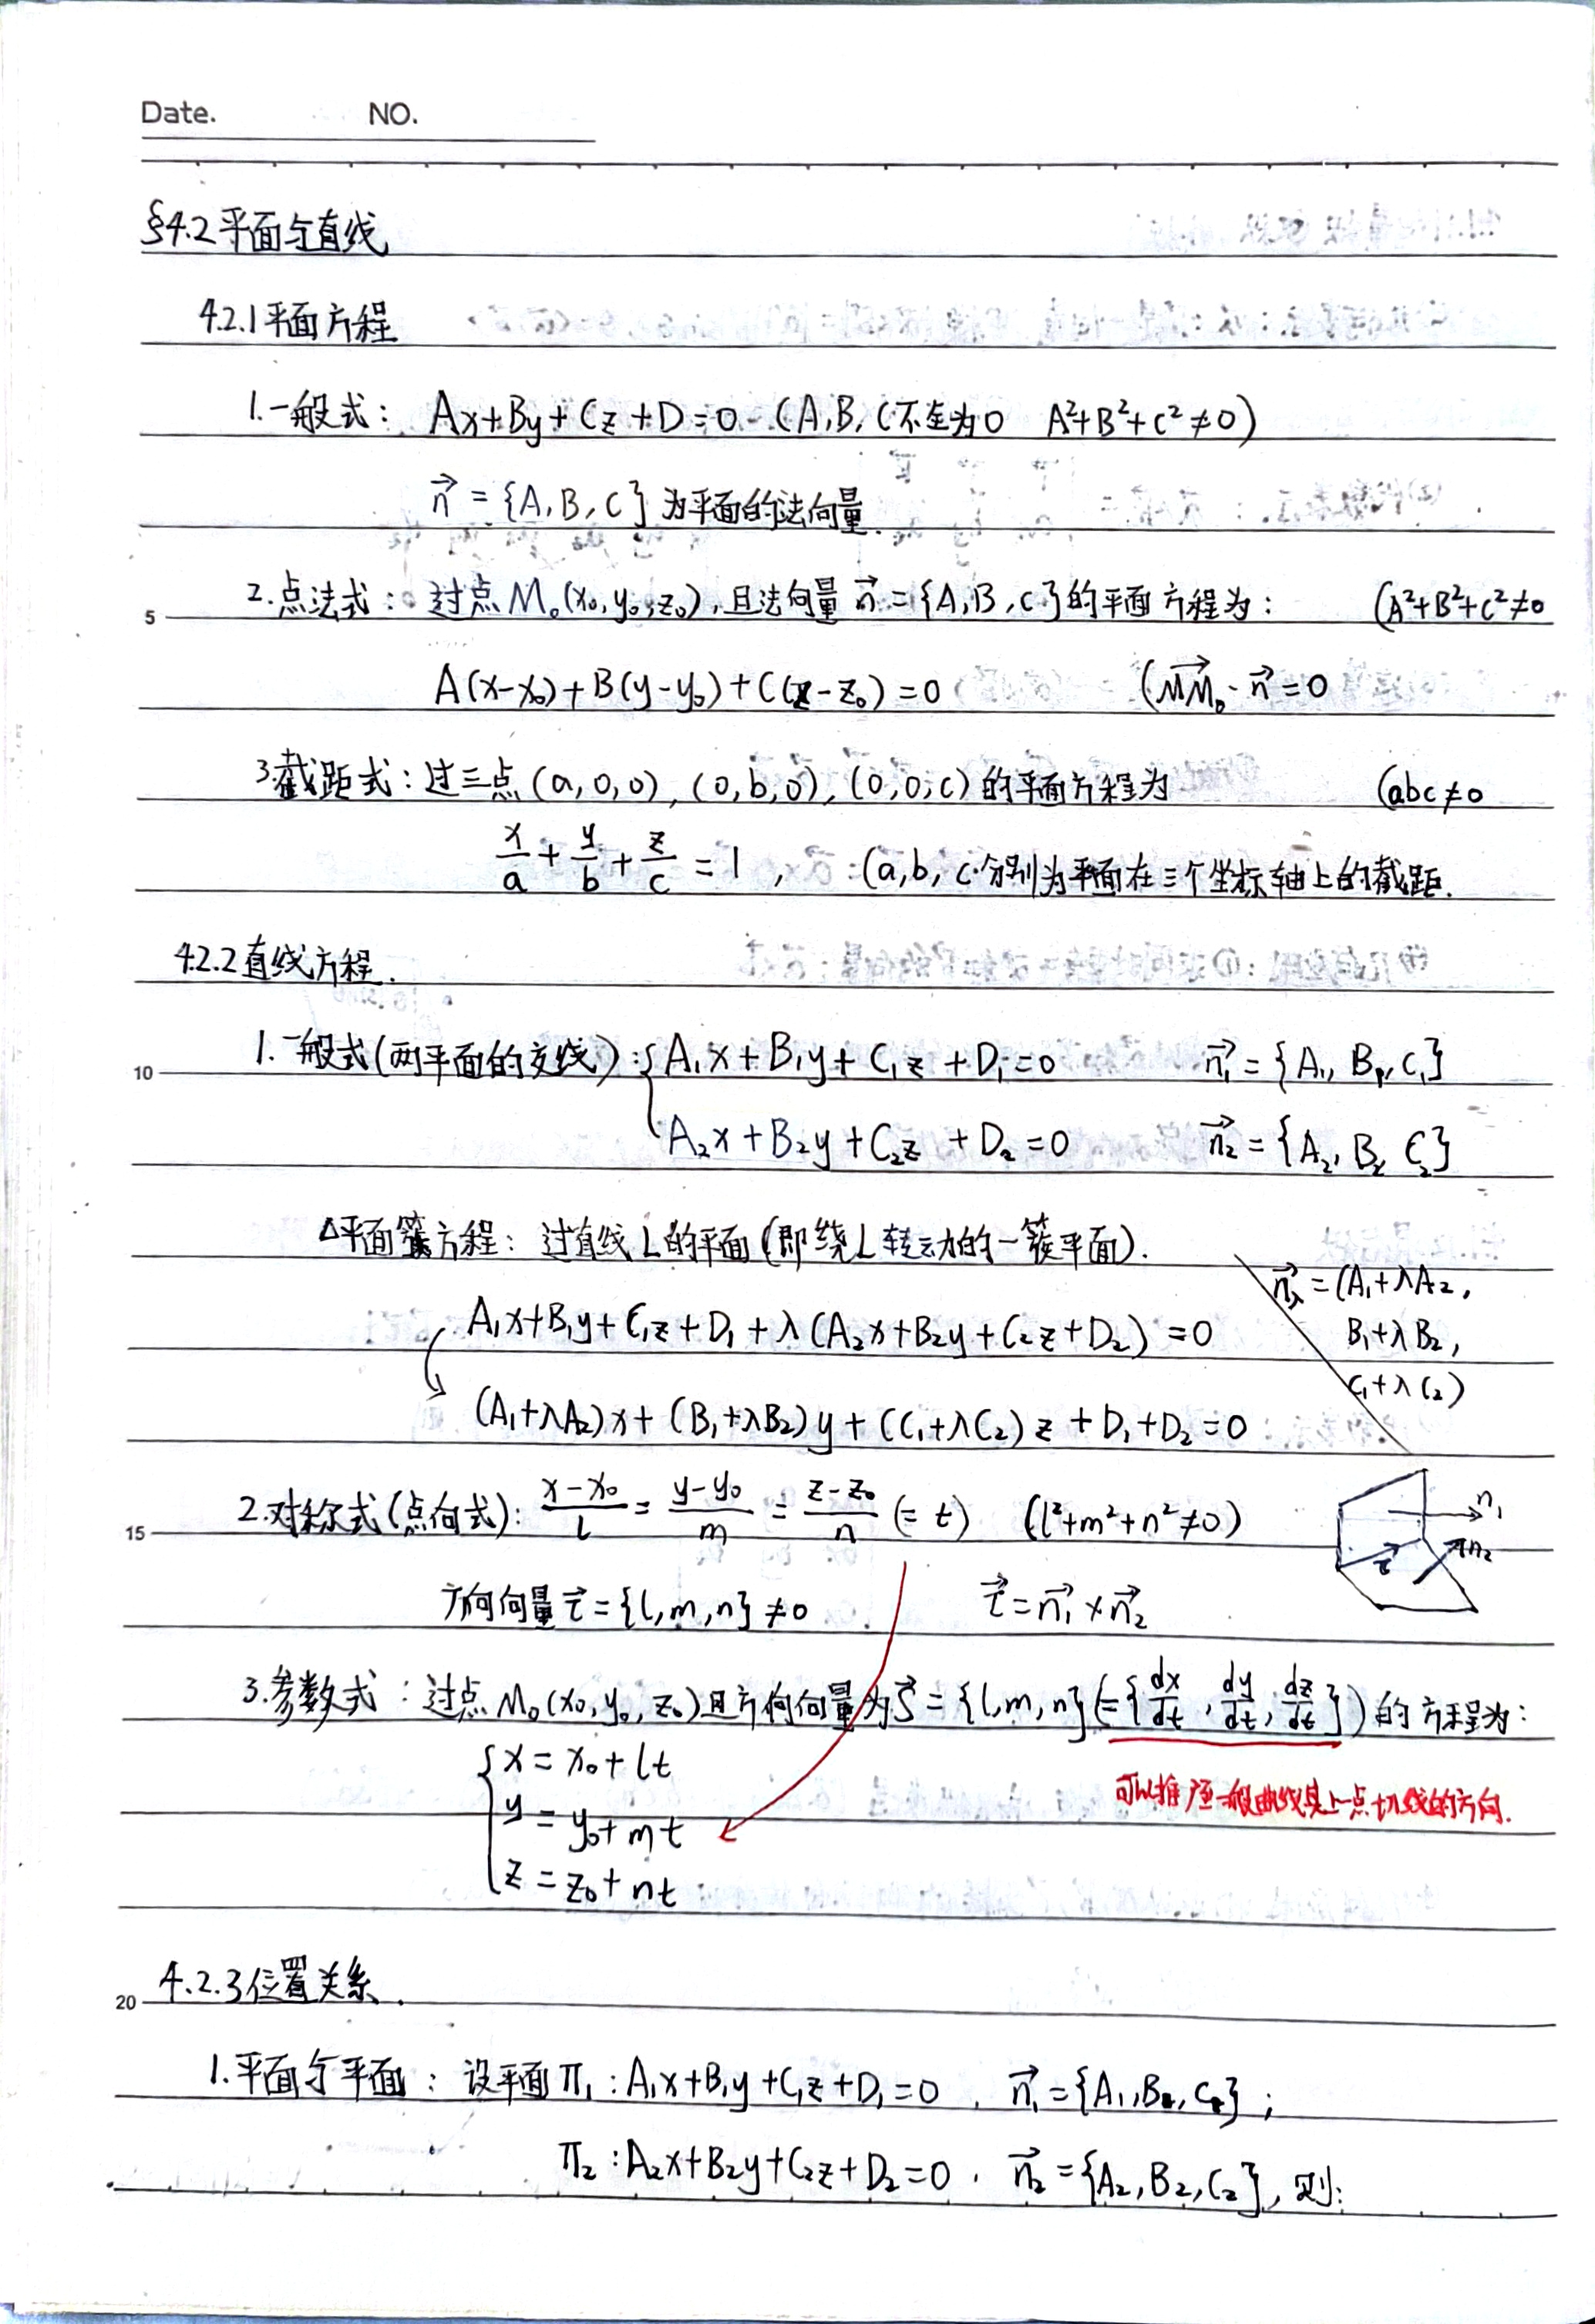 Date. NO.
§4.2平面与直线
4.2.1平面方程
1.一般式: Ax+By+Cz+D=0 (A,B,C不全为0 A²+B²+C²≠0)
n⃗={A,B,C}为平面的法向量.
5
2.点法式: 过点M₀(x₀,y₀,z₀),且法向量n⃗={A,B,C}的平面方程为: (A²+B²+C²≠0
A(x-x₀)+B(y-y₀)+C(z-z₀)=0 (MM₀⃗·n⃗=0
3.截距式:过三点(a,0,0),(0,b,0),(0,0,c)的平面方程为 (abc≠0
x/a+y/b+z/c=1, (a,b,c分别为平面在三个坐标轴上的截距.
4.2.2直线方程.
10
1.一般式(两平面的交线):{A₁x+B₁y+C₁z+D₁=0 n₁⃗={A₁,B₁,C₁}
A₂x+B₂y+C₂z+D₂=0 n₂⃗={A₂,B₂,C₂}
Δ平面簇方程: 过直线L的平面(即绕L转动的一簇平面).
n⃗λ=(A₁+λA₂,
A₁x+B₁y+C₁z+D₁+λ(A₂x+B₂y+C₂z+D₂)=0
B₁+λB₂,
C₁+λC₂)
(A₁+λA₂)x+(B₁+λB₂)y+(C₁+λC₂)z+D₁+D₂=0
15
2.对称式(点向式): (x-x₀)/l=(y-y₀)/m=(z-z₀)/n(=t) (l²+m²+n²≠0)
n₁
n₂
τ
方向向量τ⃗={l,m,n}≠0 τ⃗=n₁⃗×n₂⃗
3.参数式:过点M₀(x₀,y₀,z₀)且方向向量为s⃗={l,m,n}(={dx/dt,dy/dt,dz/dt})的方程为:
{x=x₀+lt
可以推广至一般曲线其上一点切线的方向.
y=y₀+mt
z=z₀+nt
4.2.3位置关系.
20
1.平面与平面: 设平面π₁:A₁x+B₁y+C₁z+D₁=0, n₁⃗={A₁,B₁,C₁};
π₂:A₂x+B₂y+C₂z+D₂=0, n₂⃗={A₂,B₂,C₂},则: